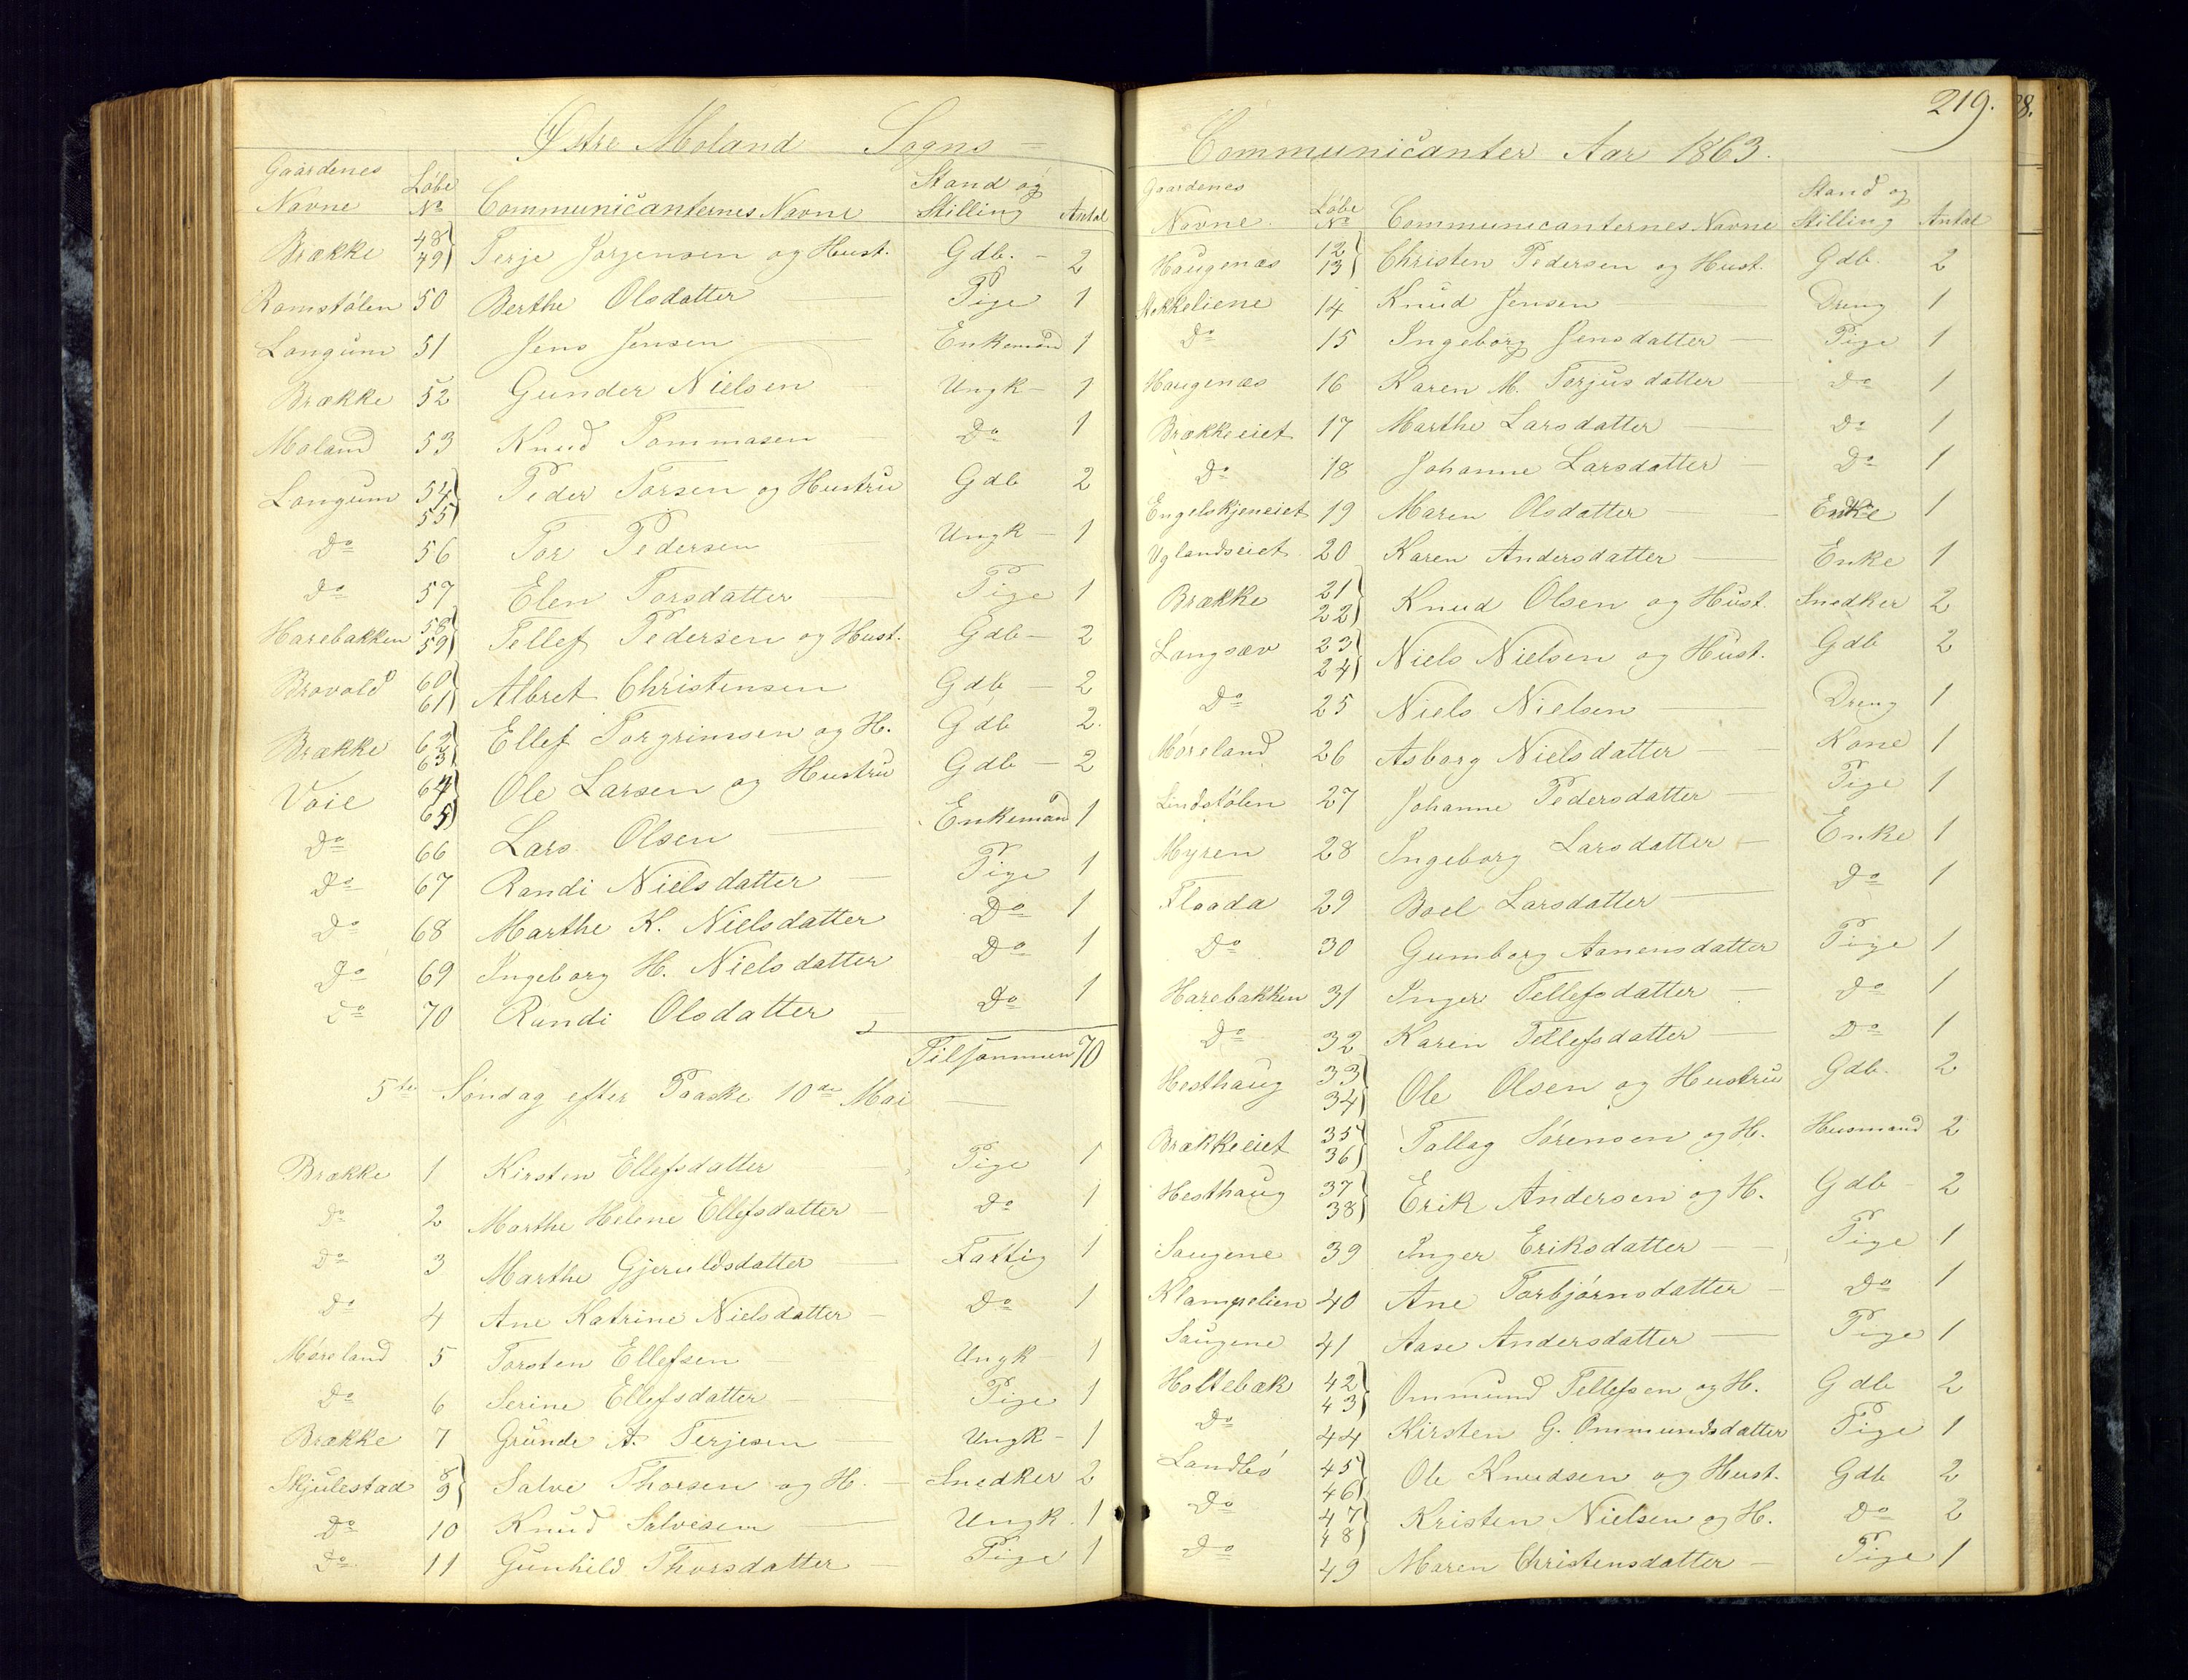 Østre Moland Sogns
Gaardenes Navne Løbe No Communicanternes Navne Stand og Stilling Antal
Brække 48 49 Terje Jørgensen og Hust. Gdb. - 2
Ramstølen 50 Berthe Olsdatter Pige 1
Longum 51 Jens Jensen Enkemand 1
Brække 52 Gunder Nielsen Ungk - 1
Moland 53 Knud Tommasen Do 1
Longum 54 55 Peder Torsen og Hustru Gdb 2
Do 56 Tor Pedersen Ungk - 1
Do 57 Elen Torsdatter Pige 1
Harebakken 58 59 Tellef Pedersen og Hust. Gdb - 2
Brovold 60 61 Albret Christensen Gdb - 2
Brække 62 63 Ellef Torgrimsen og H. Gdb 2.
Voie 64 65 Ole Larsen og Hustru Gdb - 2
Do 66 Lars Olsen Enkemand 1
Do 67 Randi Nielsdatter Pige 1
Do 68 Marthe K. Nielsdatter Do 1
Do 69 Ingeborg H. Nielsdatter Do 1
Do 70 Randi Olsdatter Do 1
Tilsammen 70
5te Søndag efter Paaske 10de Mai
Brække 1 Kirsten Ellefsdatter Pige 1
Do 2 Marthe Helene Ellefsdatter Do 1
Do 3 Marthe Gjeruldsdatter Fattig 1
Do 4 Ane Katrine Nielsdatter Do 1
Møreland 5 Torsten Ellefsen Ungk 1
Do 6 Serine Ellefsdatter Pige 1
Brække 7 Grunde A. Terjesen Ungk - 1
Skjulestad 8 9 Salve Thorsen og H. Snedker 2
Do 10 Knud Salvesen Ungk. 1
Do 11 Gunhild Thorsdatter Pige 1
219.
Communicanter Aar 1863.
Gaardenes Navne. Løbe No Communicanternes Navne Stand og Stilling Antal
Haugenæs 12 13 Christen Pedersen og Hust. Gdb. 2
Stokkeliene 14 Knud Jensen Dreng 1
Do 15 Ingeborg Jensdatter Pige 1
Haugenæs 16 Karen M. Torjusdatter Do 1
Brækkeeiet 17 Marthe Larsdatter Do 1
Do 18 Johanne Larsdatter Do 1
Engelskjeneiet 19 Maren Olsdatter Enke 1
Uglandseiet 20 Karen Andersdatter Enke 1
Brække 21 22 Knud Olsen og Hust. Snedker 2
Langsæv 23 24 Niels Nielsen og Hust. Gdb 2
Do 25 Niels Nielsen Dreng 1
Møreland 26 Asborg Nielsdatter Kone 1
Lindstølen 27 Johanne Pedersdatter Pige 1
Myren 28 Ingeborg Larsdatter Enke 1
Flaada 29 Boel Larsdatter Do 1
Do 30 Gumborg Aanensdatter Pige 1
Harebakken 31 Inger Tellefsdatter Do 1
Do 32 Karen Tellefsdatter Do 1
Hesthaug 33 34 Ole Olsen og Hustru Gdb. 2
Brækkeeiet 35 36 Tallag Sørensen og H. Husmand 2
Hesthaug 37 38 Erik Andersen og H. Gdb - 2
Saugene 39 Inger Eriksdatter Pige 1
Klampelien 40 Ane Torbjørnsdatter Do 1
Saugene 41 Aase Andersdatter Pige 1
Holtebæk 42 43 Ommund Tellefsen og H. Gdb 2
Do 44 Kirsten G. Ommundsdatter Pige 1
Landbø 45 46 Ole Knudsen og Hust. Gdb 2
Do 47 48 Kristen Nielsen og H. Do 2
Do 49 Maren Christensdatter Pige 1